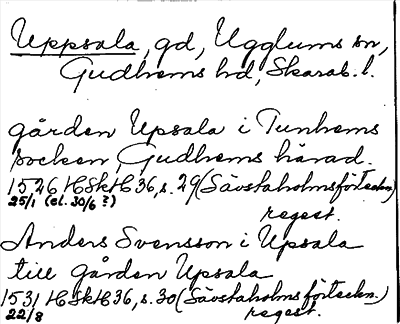 Uppsala, gd, Ugglums sn,
Gudhems hd, Skarab. l.
gården Upsala i Tunhems
socken, Gudhems härad.
1526 HSkH 36, s. 29 (Sävstaholmsförteckn.)
25/1 (el. 30/6 ?)
regest.
Anders Svensson i Upsala
till gården Upsala
1531 HSkH 36, s. 30 (Sävstaholmsförteckn.)
22/8
regest.